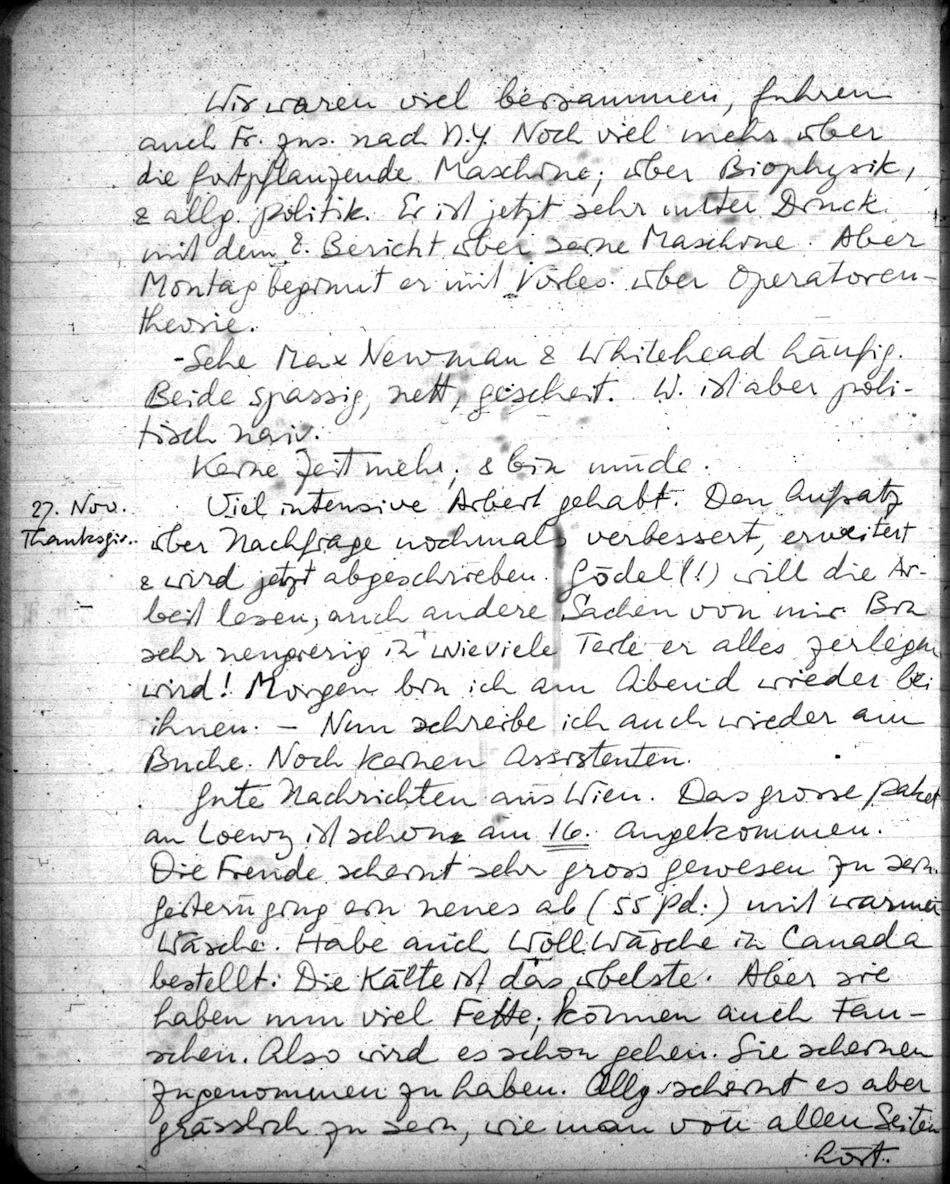 Wir waren viel beisammen, fuhren
auch Fr. zus. nach N.Y. Noch viel mehr über
die fortpflanzende Maschine; über Biophysik,
& allg. Politik. Er ist jetzt sehr unter Druck
mit dem 2. Bericht über seine Maschine. Aber
Montag beginnt er mit Vorles. über Operatoren-
theorie.
- Sehe Max Newman & Whitehead häufig.
Beide spassig, nett, gescheit. W. ist aber poli-
tisch naiv.
Keine Zeit mehr; & bin müde.
27. Nov. Viel intensive Arbeit gehabt. Den Aufsatz
Thanksgiv. über Nachfrage nochmals verbessert, erweitert
& wird jetzt abgeschrieben. Gödel (!) will die Ar-
beit lesen, auch andere Sachen von mir. Bin
sehr neugierig in wieviele Teile er alles zerlegen
wird! Morgen bin ich am Abend wieder bei
ihnen. – Nun schreibe ich auch wieder am
Buche. Noch keinen Assistenten.
Gute Nachrichten aus Wien. Das grosse Paket
an Loewy ist schon am 16. angekommen.
Die Freude scheint sehr gross gewesen zu sein.
Gestern ging ein neues ab (55 Pd.) mit warmer
Wäsche. Habe auch Wollwäsche in Canada
bestellt: Die Kälte ist das übelste. Aber sie
haben nun viel Fette; können auch tau-
schen. Also wird es schon gehen. Sie scheinen
zugenommen zu haben. Allg. scheint es aber
grässlich zu sein, wie man von allen Seiten
hört.